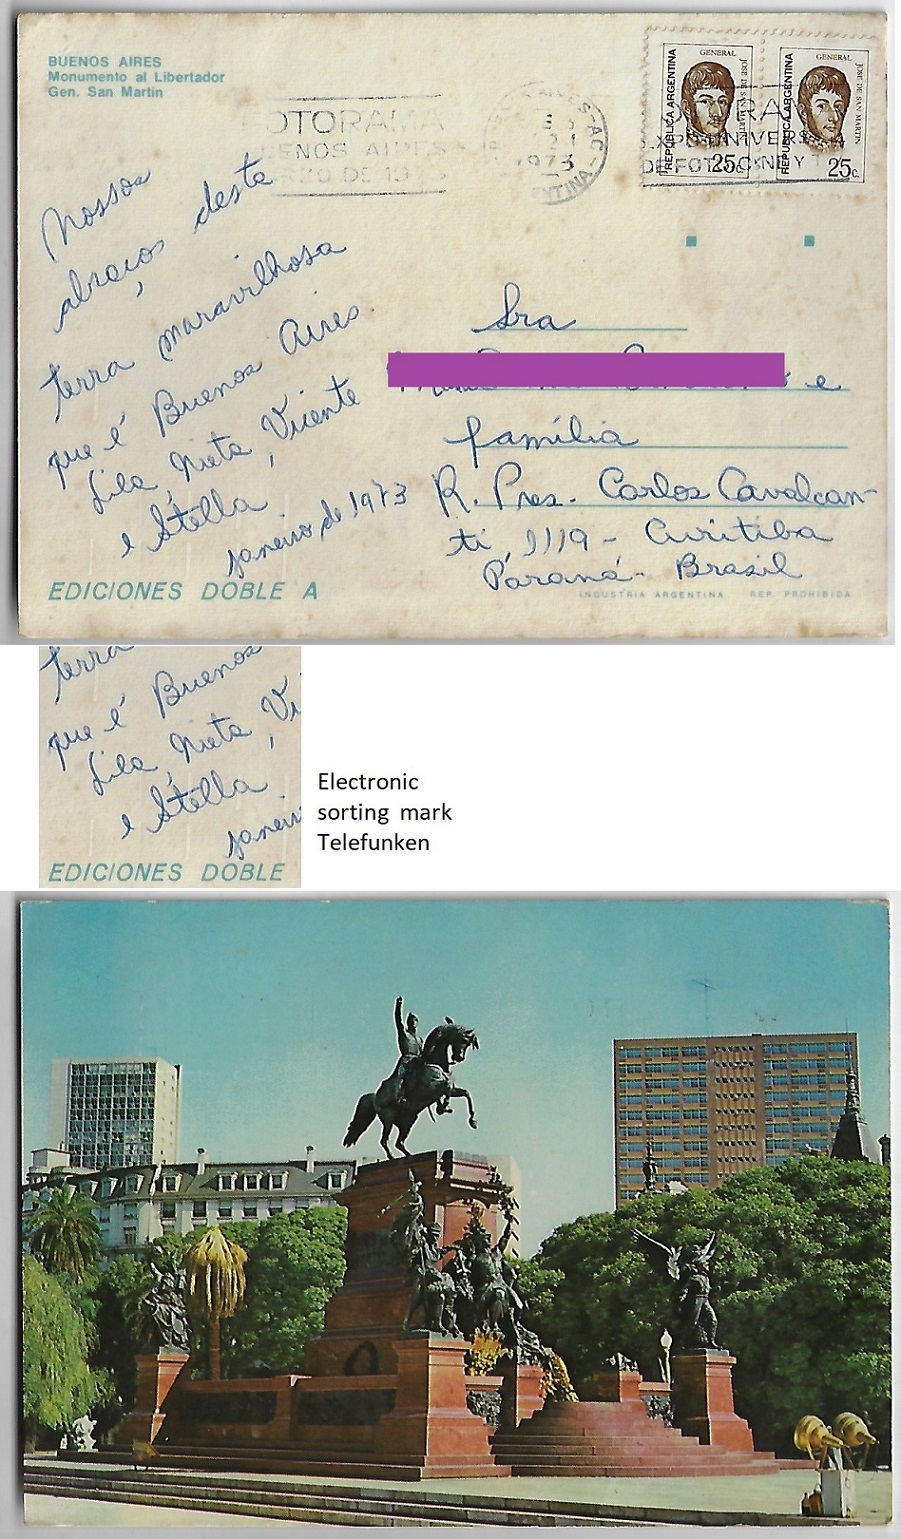 BUENOS AIRES
Monumento al Libertador
Gen. San Martín
FOTORAMA
BUENOS AIRES
DE 19
1973
REPUBLICA ARGENTINA
GENERAL
JOSE DE SAN MARTIN
25c.
REPUBLICA ARGENTINA
GENERAL
JOSE DE SAN MARTIN
25c.
EXPO UNIVERSA
DE FOTO CINE Y T
Nossos
abraços desta
terra maravilhosa
que é Buenos Aires.
Lila, Nieta, Vicente
e Stella
janeiro de 1973
Sra
e
família
R. Pres. Carlos Cavalcan-
ti, 1119 - Curitiba
Paraná - Brasil
EDICIONES DOBLE A
INDUSTRIA ARGENTINA REP. PROHIBIDA
terra
que é Buenos
Lila, Nieta, Vi
e Stella
janeir
EDICIONES DOBLE
Electronic
sorting mark
Telefunken